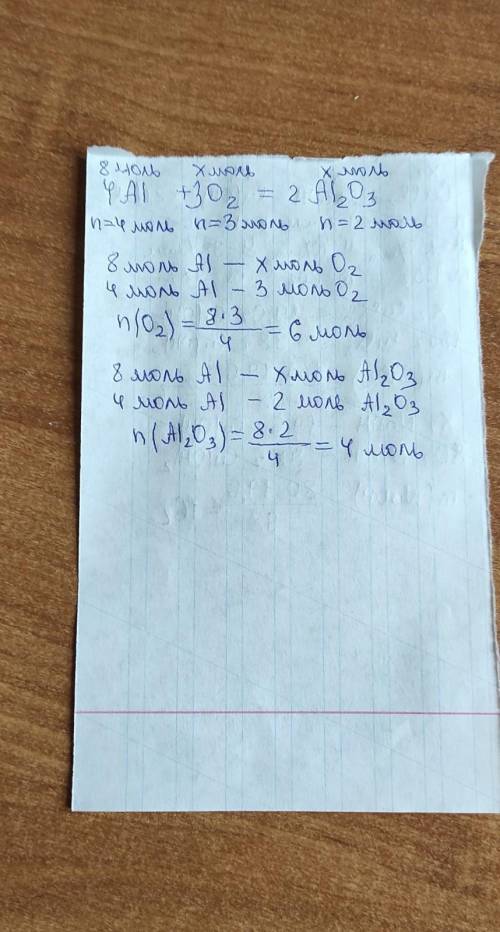 8 моль x моль x моль
4Al + 3O₂ = 2 Al₂O₃
n=4 моль n=3 моль n=2 моль
8 моль Al — x моль O₂
4 моль Al – 3 моль O₂
n(O₂) = 8·3/4 = 6 моль
8 моль Al — x моль Al₂O₃
4 моль Al – 2 моль Al₂O₃
n(Al₂O₃) = 8·2/4 = 4 моль